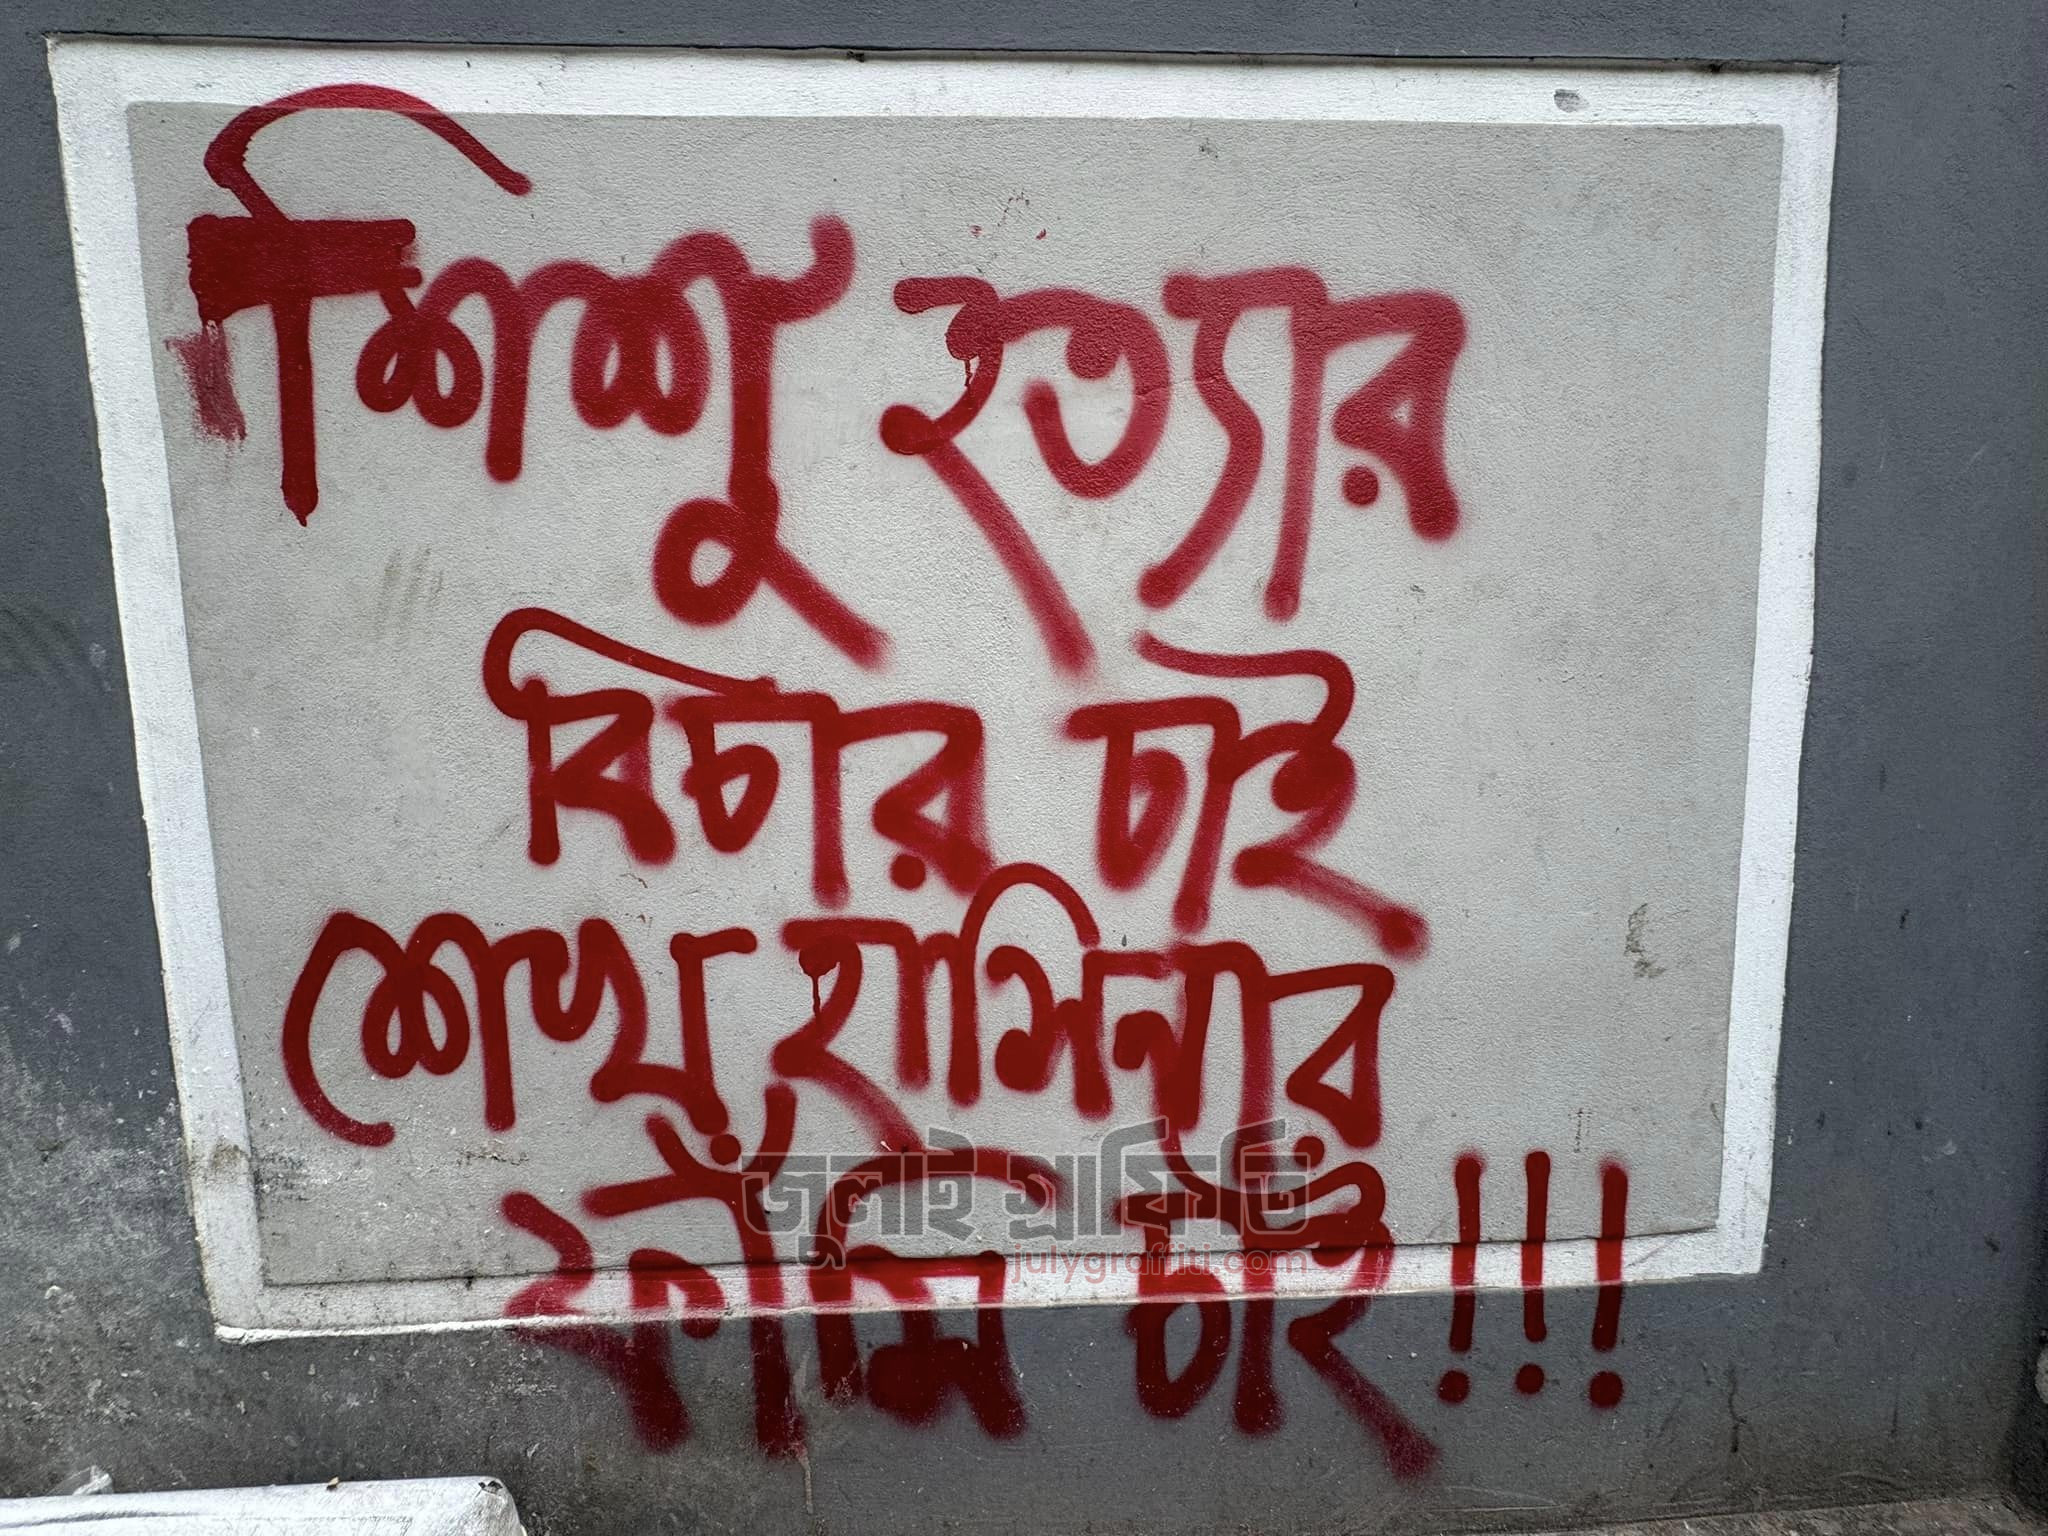 শিশু হত্যার
বিচার চাই
শেখ হাসিনার
ফাঁসি চাই!!!
জুলাই গ্রাফিতি
julygraffiti.com